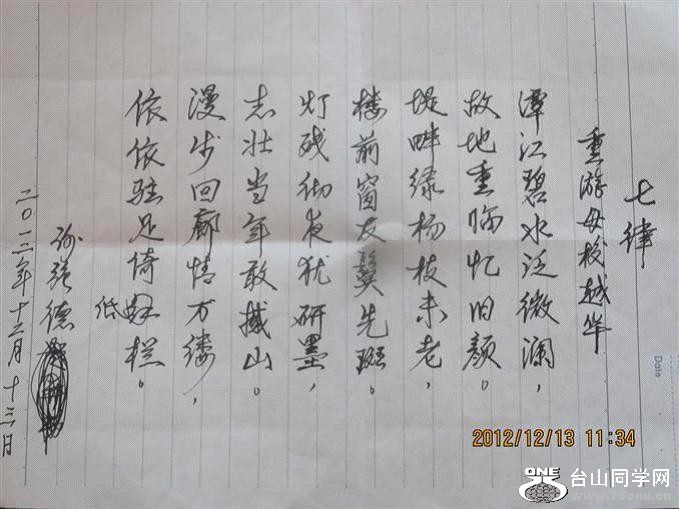 七律
重游母校越华
潭江碧水泛微澜，
故地重临忆旧颜。
堤畔绿杨枝未老，
楼前窗友鬓先斑。
灯残彻夜犹研墨，
志壮当年敢撼山。
漫步回廊情万缕，
依依驻足倚低栏。
德
二〇一二年十二月十三日
Date
2012/12/13 11:34
ONE
台山同学网
www.75one.cn